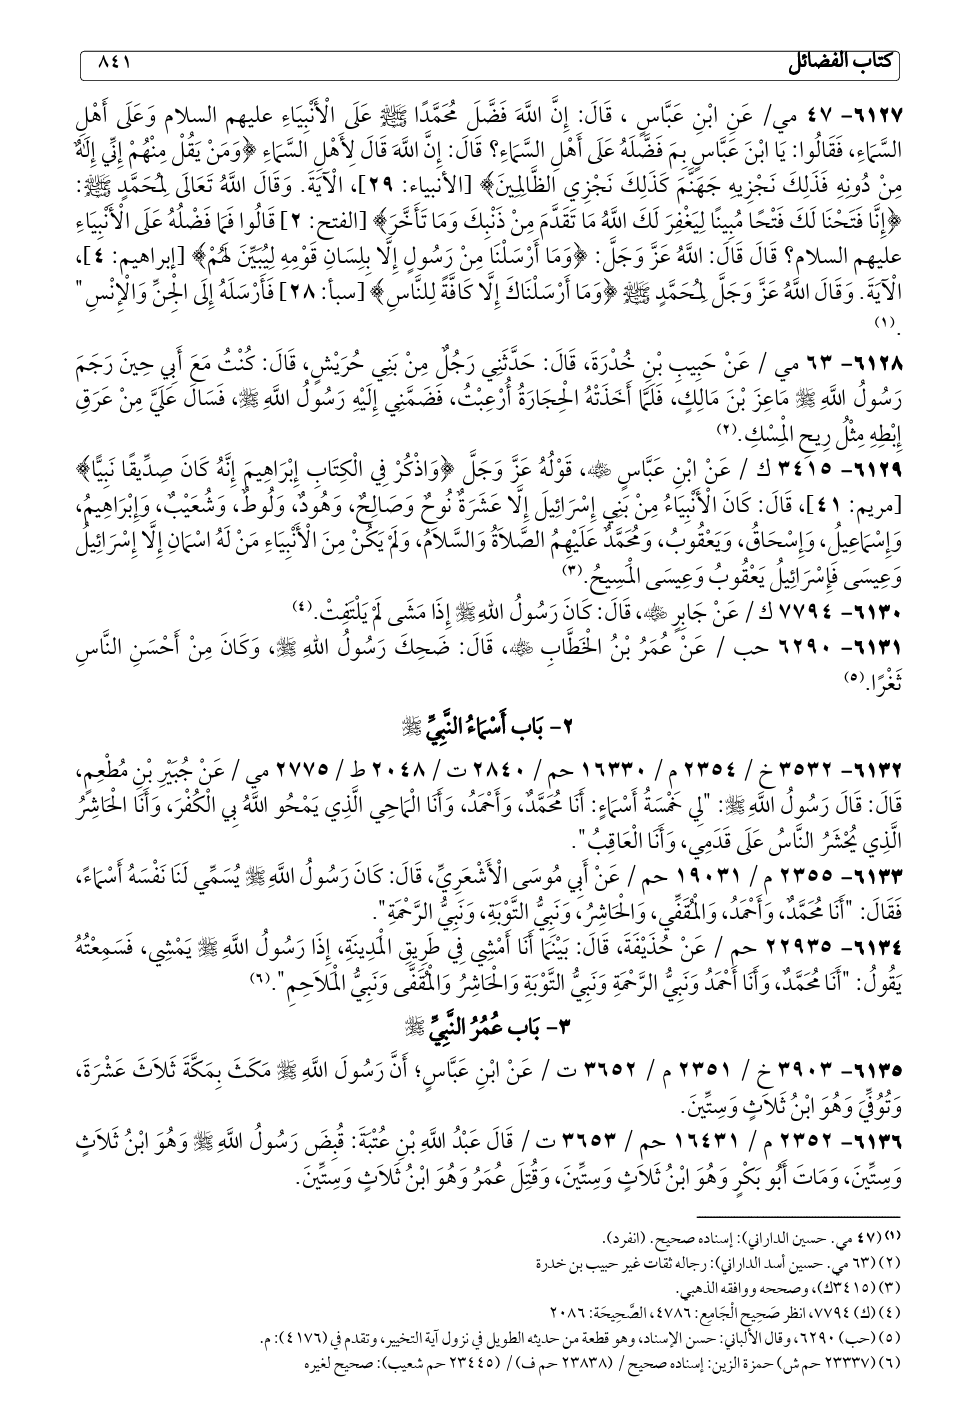 كتاب الفضائل ٨٤١
٦١٢٧- ٤٧ مي/ عَنِ ابْنِ عَبَّاسٍ ، قَالَ: إِنَّ اللَّهَ فَضَّلَ مُحَمَّدًا ﷺ عَلَى الْأَنْبِيَاءِ عليهم السلام وَعَلَى أَهْلِ
السَّمَاءِ، فَقَالُوا: يَا ابْنَ عَبَّاسٍ بِمَ فَضَّلَهُ عَلَى أَهْلِ السَّمَاءِ؟ قَالَ: إِنَّ اللَّهَ قَالَ لِأَهْلِ السَّمَاءِ ﴿وَمَنْ يَقُلْ مِنْهُمْ إِنِّي إِلَهٌ
مِنْ دُونِهِ فَذَلِكَ نَجْزِيهِ جَهَنَّمَ كَذَلِكَ نَجْزِي الظَّالِمِينَ﴾ [الأنبياء: ٢٩]، الْآيَةَ. وَقَالَ اللَّهُ تَعَالَى لِمُحَمَّدٍ ﷺ:
﴿إِنَّا فَتَحْنَا لَكَ فَتْحًا مُبِينًا لِيَغْفِرَ لَكَ اللَّهُ مَا تَقَدَّمَ مِنْ ذَنْبِكَ وَمَا تَأَخَّرَ﴾ [الفتح: ٢] قَالُوا فَمَا فَضْلُهُ عَلَى الْأَنْبِيَاءِ
عليهم السلام؟ قَالَ قَالَ: اللَّهُ عَزَّ وَجَلَّ: ﴿وَمَا أَرْسَلْنَا مِنْ رَسُولٍ إِلَّا بِلِسَانِ قَوْمِهِ لِيُبَيِّنَ لَهُمْ﴾ [إبراهيم: ٤]،
الْآيَةَ. وَقَالَ اللَّهُ عَزَّ وَجَلَّ لِمُحَمَّدٍ ﷺ ﴿وَمَا أَرْسَلْنَاكَ إِلَّا كَافَّةً لِلنَّاسِ﴾ [سبأ: ٢٨] فَأَرْسَلَهُ إِلَى الْجِنِّ وَالْإِنْسِ"
.(١)
٦١٢٨- ٦٣ مي / عَنْ حَبِيبِ بْنِ خُدْرَةَ، قَالَ: حَدَّثَنِي رَجُلٌ مِنْ بَنِي حُرَيْشٍ، قَالَ: كُنْتُ مَعَ أَبِي حِينَ رَجَمَ
رَسُولُ اللَّهِ ﷺ مَاعِزَ بْنَ مَالِكٍ، فَلَمَّا أَخَذَتْهُ الْحِجَارَةُ أُرْعِبْتُ، فَضَمَّنِي إِلَيْهِ رَسُولُ اللَّهِ ﷺ، فَسَالَ عَلَيَّ مِنْ عَرَقِ
إِبْطِهِ مِثْلُ رِيحِ الْمِسْكِ.(٢)
٦١٢٩- ٣٤١٥ ك / عَنْ ابْنِ عَبَّاسٍ ﵁، قَوْلُهُ عَزَّ وَجَلَّ ﴿وَاذْكُرْ فِي الْكِتَابِ إِبْرَاهِيمَ إِنَّهُ كَانَ صِدِّيقًا نَبِيًّا﴾
[مريم: ٤١]، قَالَ: كَانَ الْأَنْبِيَاءُ مِنْ بَنِي إِسْرَائِيلَ إِلَّا عَشَرَةٌ نُوحٌ وَصَالِحٌ، وَهُودٌ، وَلُوطٌ، وَشُعَيْبٌ، وَإِبْرَاهِيمُ،
وَإِسْمَاعِيلُ، وَإِسْحَاقُ، وَيَعْقُوبُ، وَمُحَمَّدٌ عَلَيْهِمُ الصَّلاَةُ وَالسَّلاَمُ، وَلَمْ يَكُنْ مِنَ الْأَنْبِيَاءِ مَنْ لَهُ اسْمَانِ إِلَّا إِسْرَائِيلُ
وَعِيسَى فَإِسْرَائِيلُ يَعْقُوبُ وَعِيسَى الْمَسِيحُ.(٣)
٦١٣٠- ٧٧٩٤ ك / عَنْ جَابِرٍ ﵁، قَالَ: كَانَ رَسُولُ اللهِ ﷺ إِذَا مَشَى لَمْ يَلْتَفِتْ.(٤)
٦١٣١- ٦٢٩٠ حب / عَنْ عُمَرُ بْنُ الْخَطَّابِ ﵁، قَالَ: ضَحِكَ رَسُولُ اللهِ ﷺ، وَكَانَ مِنْ أَحْسَنِ النَّاسِ
ثَغْرًا.(٥)
٢- بَاب أَسْمَاءُ النَّبِيِّ ﷺ
٦١٣٢- ٣٥٣٢ خ / ٢٣٥٤ م/ ١٦٣٣٠ حم/ ٢٨٤٠ ت/ ٢٠٤٨ ط/ ٢٧٧٥ مي/ عَنْ جُبَيْرِ بْنِ مُطْعِمٍ،
قَالَ: قَالَ رَسُولُ اللَّهِ ﷺ: "لِي خَمْسَةُ أَسْمَاءٍ: أَنَا مُحَمَّدٌ، وَأَحْمَدُ، وَأَنَا الْمَاحِي الَّذِي يَمْحُو اللَّهُ بِي الْكُفْرَ، وَأَنَا الْحَاشِرُ
الَّذِي يُحْشَرُ النَّاسُ عَلَى قَدَمِي، وَأَنَا الْعَاقِبُ".
٦١٣٣- ٢٣٥٥ م/ ١٩٠٣١ حم/ عَنْ أَبِي مُوسَى الْأَشْعَرِيِّ، قَالَ: كَانَ رَسُولُ اللَّهِ ﷺ يُسَمِّي لَنَا نَفْسَهُ أَسْمَاءً،
فَقَالَ: "أَنَا مُحَمَّدٌ، وَأَحْمَدُ، وَالْمُقَفِّي، وَالْحَاشِرُ، وَنَبِيُّ التَّوْبَةِ، وَنَبِيُّ الرَّحْمَةِ".
٦١٣٤- ٢٢٩٣٥ حم / عَنْ حُذَيْفَةَ، قَالَ: بَيْنَمَا أَنَا أَمْشِي فِي طَرِيقِ الْمَدِينَةِ، إِذَا رَسُولُ اللَّهِ ﷺ يَمْشِي، فَسَمِعْتُهُ
يَقُولُ: "أَنَا مُحَمَّدٌ، وَأَنَا أَحْمَدُ وَنَبِيُّ الرَّحْمَةِ وَنَبِيُّ التَّوْبَةِ وَالْحَاشِرُ وَالْمُقَفَّى وَنَبِيُّ الْمَلاَحِمِ".(٦)
٣- بَاب عُمُرُ النَّبِيِّ ﷺ
٦١٣٥- ٣٩٠٣ خ/ ٢٣٥١ م / ٣٦٥٢ ت / عَنْ ابْنِ عَبَّاسٍ؛ أَنَّ رَسُولَ اللَّهِ ﷺ مَكَثَ بِمَكَّةَ ثَلاَثَ عَشْرَةَ،
وَتُوُفِّيَ وَهُوَ ابْنُ ثَلاَثٍ وَسِتِّينَ.
٦١٣٦- ٢٣٥٢ م/ ١٦٤٣١ حم/ ٣٦٥٣ ت/ قَالَ عَبْدُ اللَّهِ بْنِ عُتْبَةَ: قُبِضَ رَسُولُ اللَّهِ ﷺ وَهُوَ ابْنُ ثَلاَثٍ
وَسِتِّينَ، وَمَاتَ أَبُو بَكْرٍ وَهُوَ ابْنُ ثَلاَثٍ وَسِتِّينَ، وَقُتِلَ عُمَرُ وَهُوَ ابْنُ ثَلاَثٍ وَسِتِّينَ.
(١) (٤٧ مي. حسين الداراني): إسناده صحيح. (انفرد).
(٢) (٦٣ مي. حسين أسد الداراني): رجاله ثقات غير حبيب بن خدرة
(٣) (٣٤١٥ك)، وصححه ووافقه الذهبي.
(٤) (ك) ٧٧٩٤، انظر صَحِيح الْجَامِع: ٤٧٨٦، الصَّحِيحَة: ٢٠٨٦
(٥) (حب) ٦٢٩٠، وقال الألباني: حسن الإسناد، وهو قطعة من حديثه الطويل في نزول آية التخيير، وتقدم في (٤١٧٦): م.
(٦) (٢٣٣٣٧ حم ش) حمزة الزين: إسناده صحيح / (٢٣٨٣٨ حم ف)/ (٢٣٤٤٥ حم شعيب): صحيح لغيره